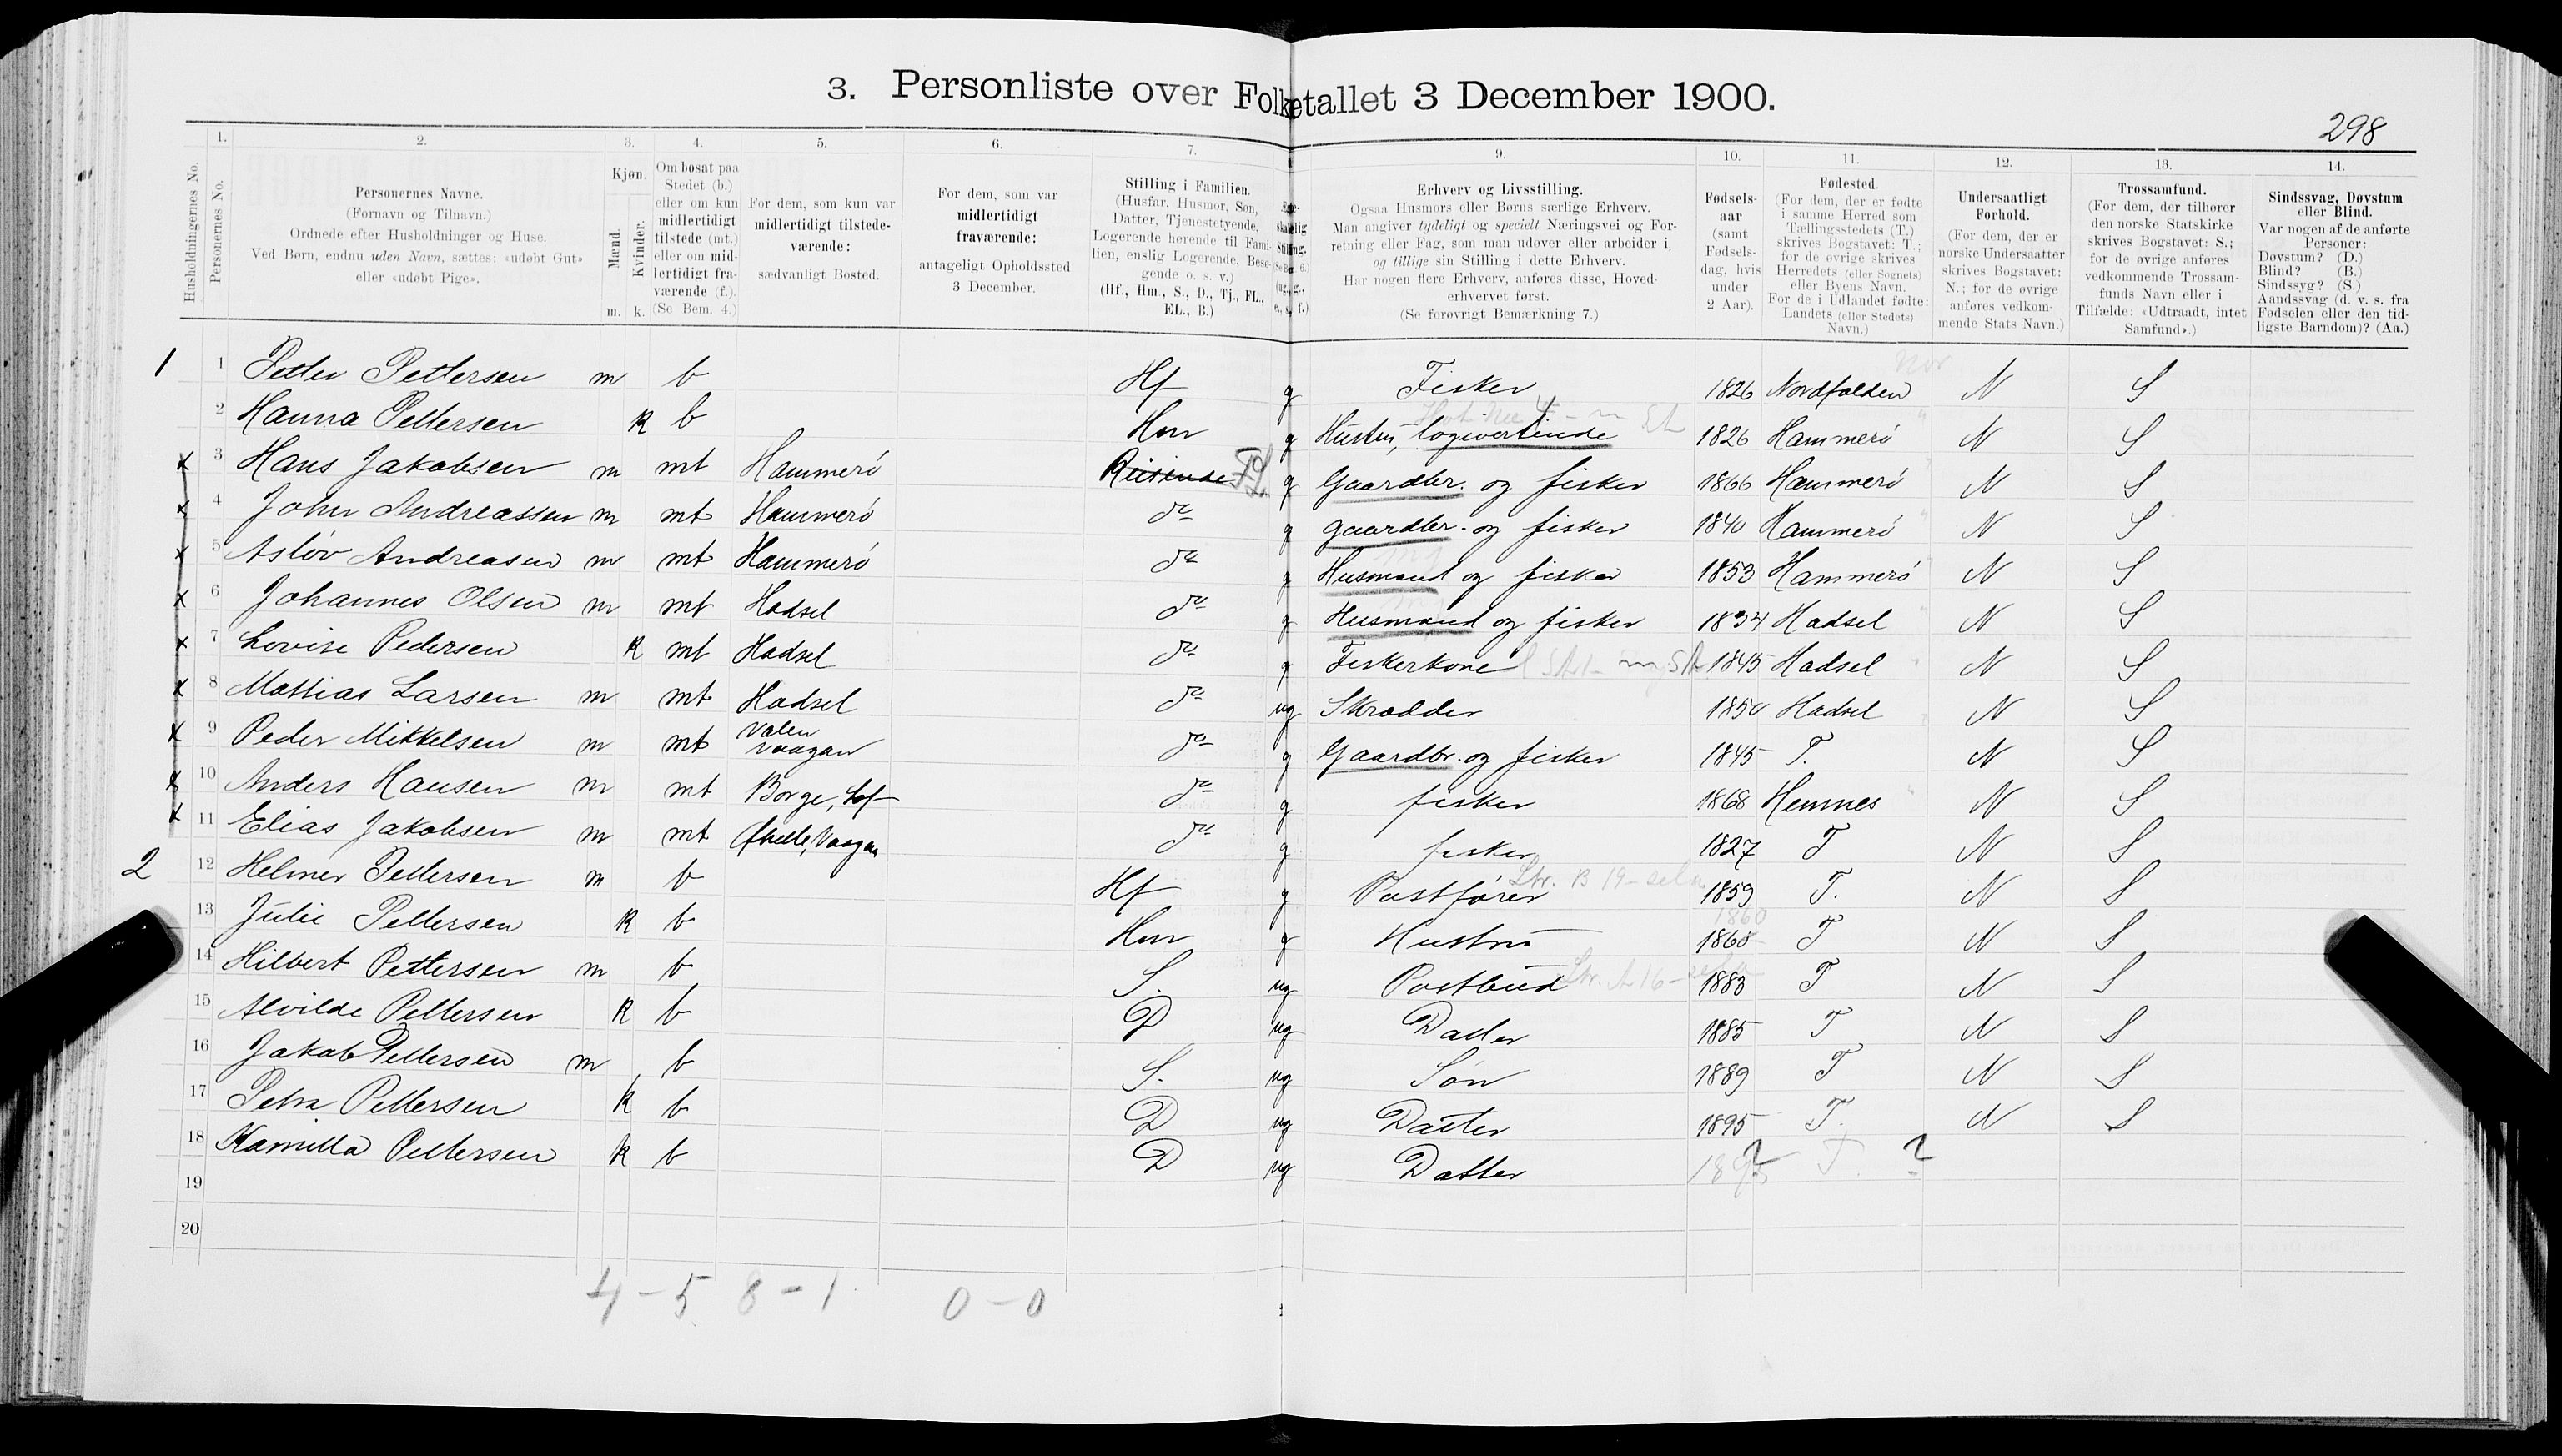 3. Personliste over Folketallet 3 December 1900.
298
1. 2. 3. 4. 5. 6. 7. 9. 10. 11. 12. 13. 14.
Husholdningernes No.
Personernes No.
Personernes Navne.
(Fornavn og Tilnavn.)
Ordnede efter Husholdninger og Huse.
Ved Børn, endnu uden Navn, sættes: «udøbt Gut»
eller «udøbt Pige».
Kjøn.
Mænd.
Kvinder.
m. k.
Om bosat paa
Stedet (b.)
eller om kun
midlertidigt
tilstede (mt.)
eller om mid-
lertidigt fra-
værende (f.).
(Se Bem. 4.)
For dem, som kun var
midlertidigt tilstede-
værende:
sædvanligt Bosted.
For dem, som var
midlertidigt
fraværende:
antageligt Opholdssted
3 December.
Stilling i Familien.
(Husfar, Husmor, Søn,
Datter, Tjenestetyende,
Logerende hørende til Fami-
lien, enslig Logerende, Besø-
gende o. s. v.)
(Hf., Hm., S., D., Tj., FL.,
EL., B.)
Erhverv og Livsstilling.
Ogsaa Husmors eller Børns særlige Erhverv.
Man angiver tydeligt og specielt Næringsvei og For-
retning eller Fag, som man udøver eller arbeider i,
og tillige sin Stilling i dette Erhverv.
Har nogen flere Erhverv, anføres disse, Hoved-
erhvervet først.
(Se forøvrigt Bemærkning 7.)
Fødsels-
aar
(samt
Fødsels-
dag, hvis
under
2 Aar).
Fødested.
(For dem, der er fødte
i samme Herred som
Tællingsstedets (T.)
skrives Bogstavet: T.;
for de øvrige skrives
Herredets (eller Sognets)
eller Byens Navn.
For de i Udlandet fødte:
Landets (eller Stedets)
Navn.)
Undersaatligt
Forhold.
(For dem, der er
norske Undersaatter
skrives Bogstavet:
N.; for de øvrige
anføres vedkom-
mende Stats Navn.)
Trossamfund.
(For dem, der tilhører
den norske Statskirke
skrives Bogstavet: S.;
for de øvrige anføres
vedkommende Trossam-
funds Navn eller i
Tilfælde: «Udtraadt, intet
Samfund».)
Sindssvag, Døvstum
eller Blind.
Var nogen af de anførte
Personer:
Døvstum? (D.)
Blind? (B.)
Sindssyg? (S.)
Aandssvag (d. v. s. fra
Fødselen eller den tid-
ligste Barndom)? (Aa.)
1 1 Petter Pettersen m b Hf g Fisker 1826 Nordfolden N S
2 Hanna Pettersen k b Hm g Hustru, logivertinde 1826 Hammerö N S
x 3 Hans Jakobsen m mt Hammerö Reisende FL g Gaardbr. og fisker 1866 Hammerö N S
x 4 John Andreassen m mt Hammerö do g gaardbr. og fisker 1840 Hammerö N S
x 5 Asløv Andreasen m mt Hammerö do g Husmand og fisker 1853 Hammerö N S
x 6 Johannes Olsen m mt Hadsel do g Husmand og fisker 1834 Hadsel N S
x 7 Lovise Pedersen k mt Hadsel do g Fiskerkone 1845 Hadsel N S
x 8 Mattias Larsen m mt Hadsel do ug Skrædder 1850 Hadsel N S
x 9 Peder Mikkelsen m mt Valen Vaagan do g Gaardbr. og fisker 1845 T. N S
x 10 Anders Hansen m mt Borge, Lof do g fisker 1868 Hemnes N S
x 11 Elias Jakobsen m mt Vaagan do g fisker 1827 T N S
2 12 Helmer Pettersen m b Hf g Postfører 1859 T. N S
13 Julie Pettersen k b Hm g Hustru 1860 1860 T N S
14 Hilbert Pettersen m b S. ug Postbud 1883 T N S
15 Alvilde Pettersen k b D ug Datter 1885 T N S
16 Jakob Pettersen m b S. ug Søn 1889 T N S
17 Petra Pettersen k b D ug Datter 1895 T. N S
18 Kamilla Pettersen k b D ug Datter ? T ?
19
20
4 - 5 8 - 1 0 - 0